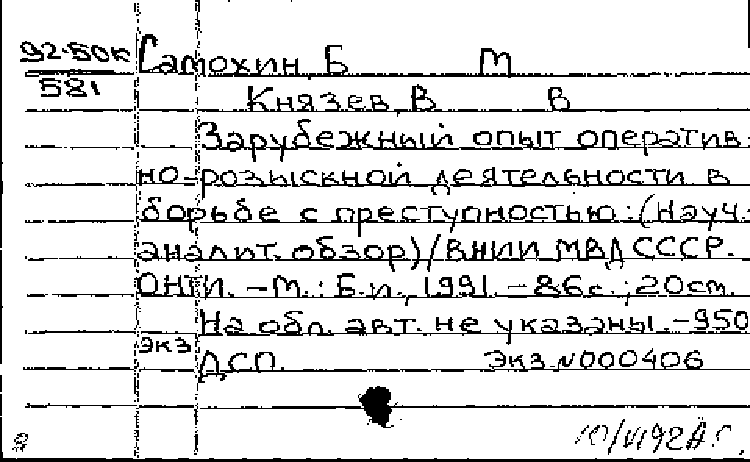 92-50к Самохин, Б М
581
Князев, В В
Зарубежный опыт оператив-
но-розыскной деятельности в
борьбе с преступностью: (Науч.-
аналит. обзор)/ВНИИ МВД СССР.
ОНТИ. - М.: Б.и., 1991. - 86с.; 20см.
На обл. авт. не указаны. - 950
экз
ДСП. Экз.№000406
10/VI92